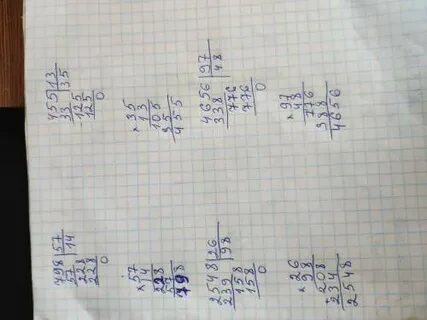 798|57
57 14
228
228
0
×57
14
228
57
798
2548|26
239 98
158
158
0
×26
98
208
234
2548
455|13
33 35
125
125
0
×35
13
105
35
455
4656|97
338 48
776
776
0
×97
48
776
388
4656